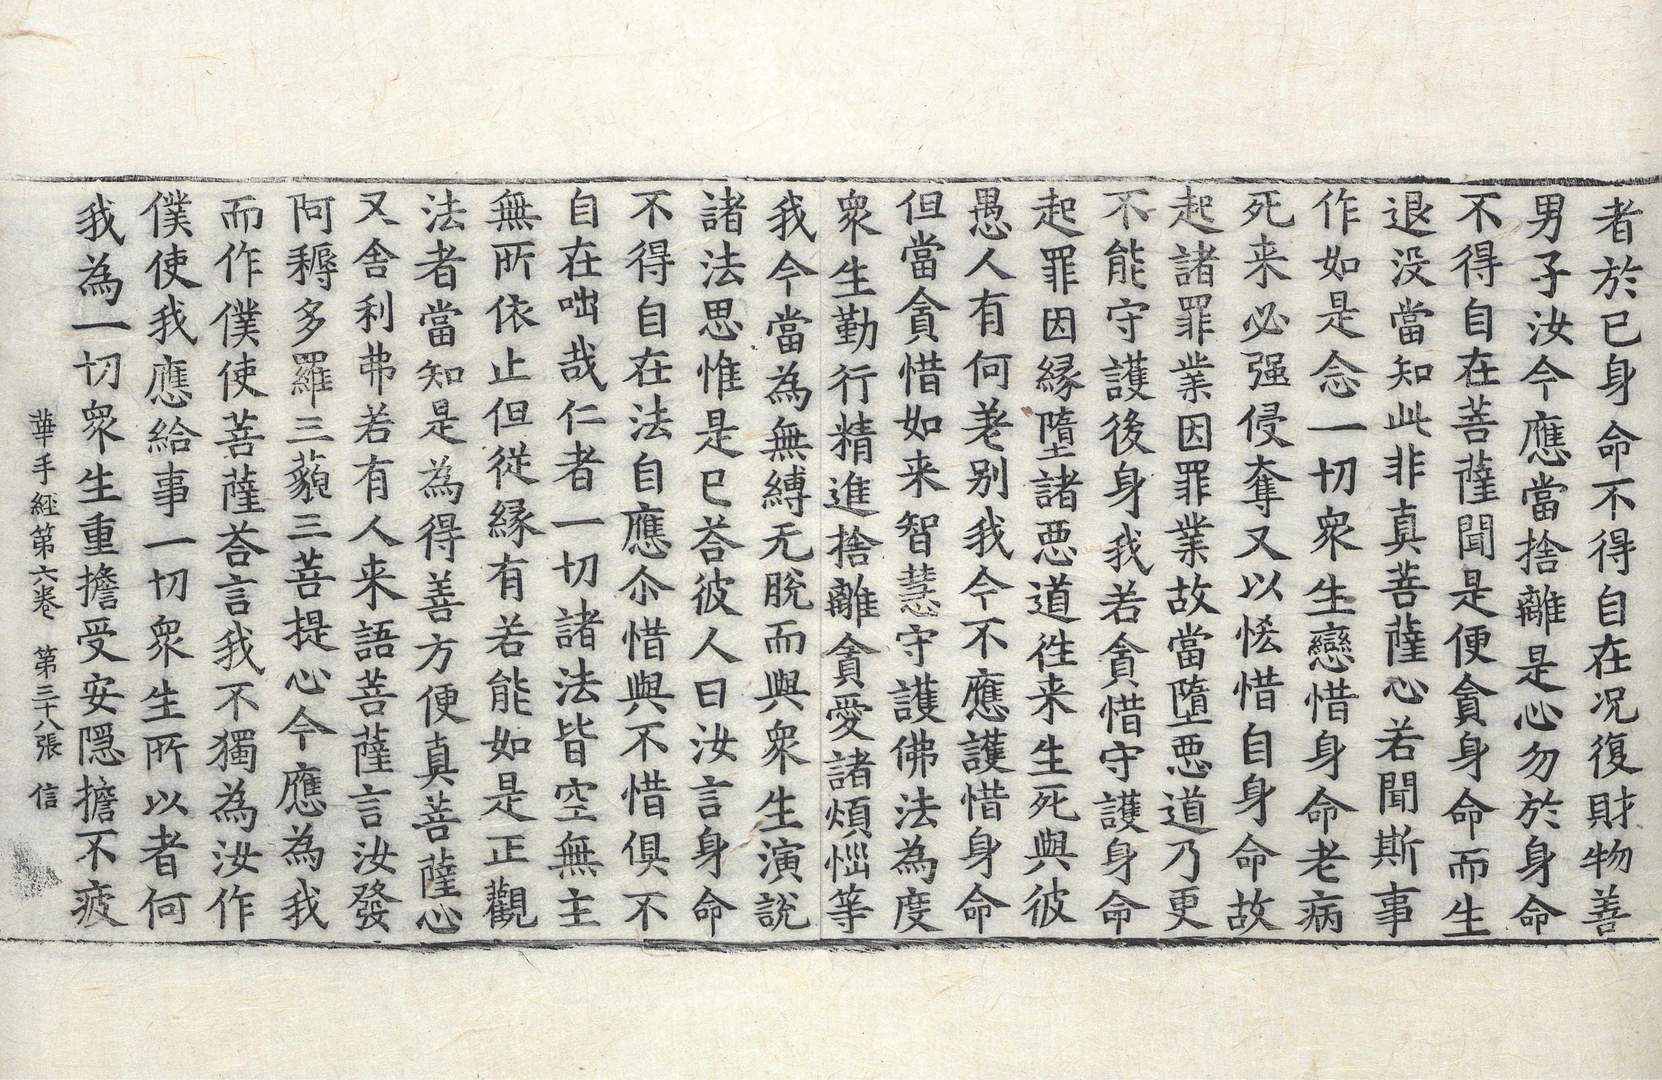 者於已身命不得自在况復財物善
男子汝今應當捨離是心勿於身命
不得自在菩薩聞是便貪身命而生
退没當知此非真菩薩心若聞斯事
作如是念一切衆生戀惜身命老病
死来必强侵奪又以悋惜自身命故
起諸罪業因罪業故當墮惡道乃更
不能守護後身我若貪惜守護身命
起罪因緣墮諸惡道徃来生死與彼
愚人有何差别我今不應護惜身命
但當貪惜如来智慧守護佛法為度
衆生勤行精進捨離貪愛諸煩惱等
我今當為無縛无脫而與衆生演說
諸法思惟是已荅彼人曰汝言身命
不得自在法自應尒惜與不惜俱不
自在咄哉仁者一切諸法皆空無主
無所依止但從緣有若能如是正觀
法者當知是為得善方便真菩薩心
又舍利弗若有人来語菩薩言汝發
阿耨多羅三藐三菩提心今應為我
而作僕使菩薩荅言我不獨為汝作
僕使我應給事一切衆生所以者何
我為一切衆生重擔受安隱擔不疲
華手經第六卷 第三十八張 信